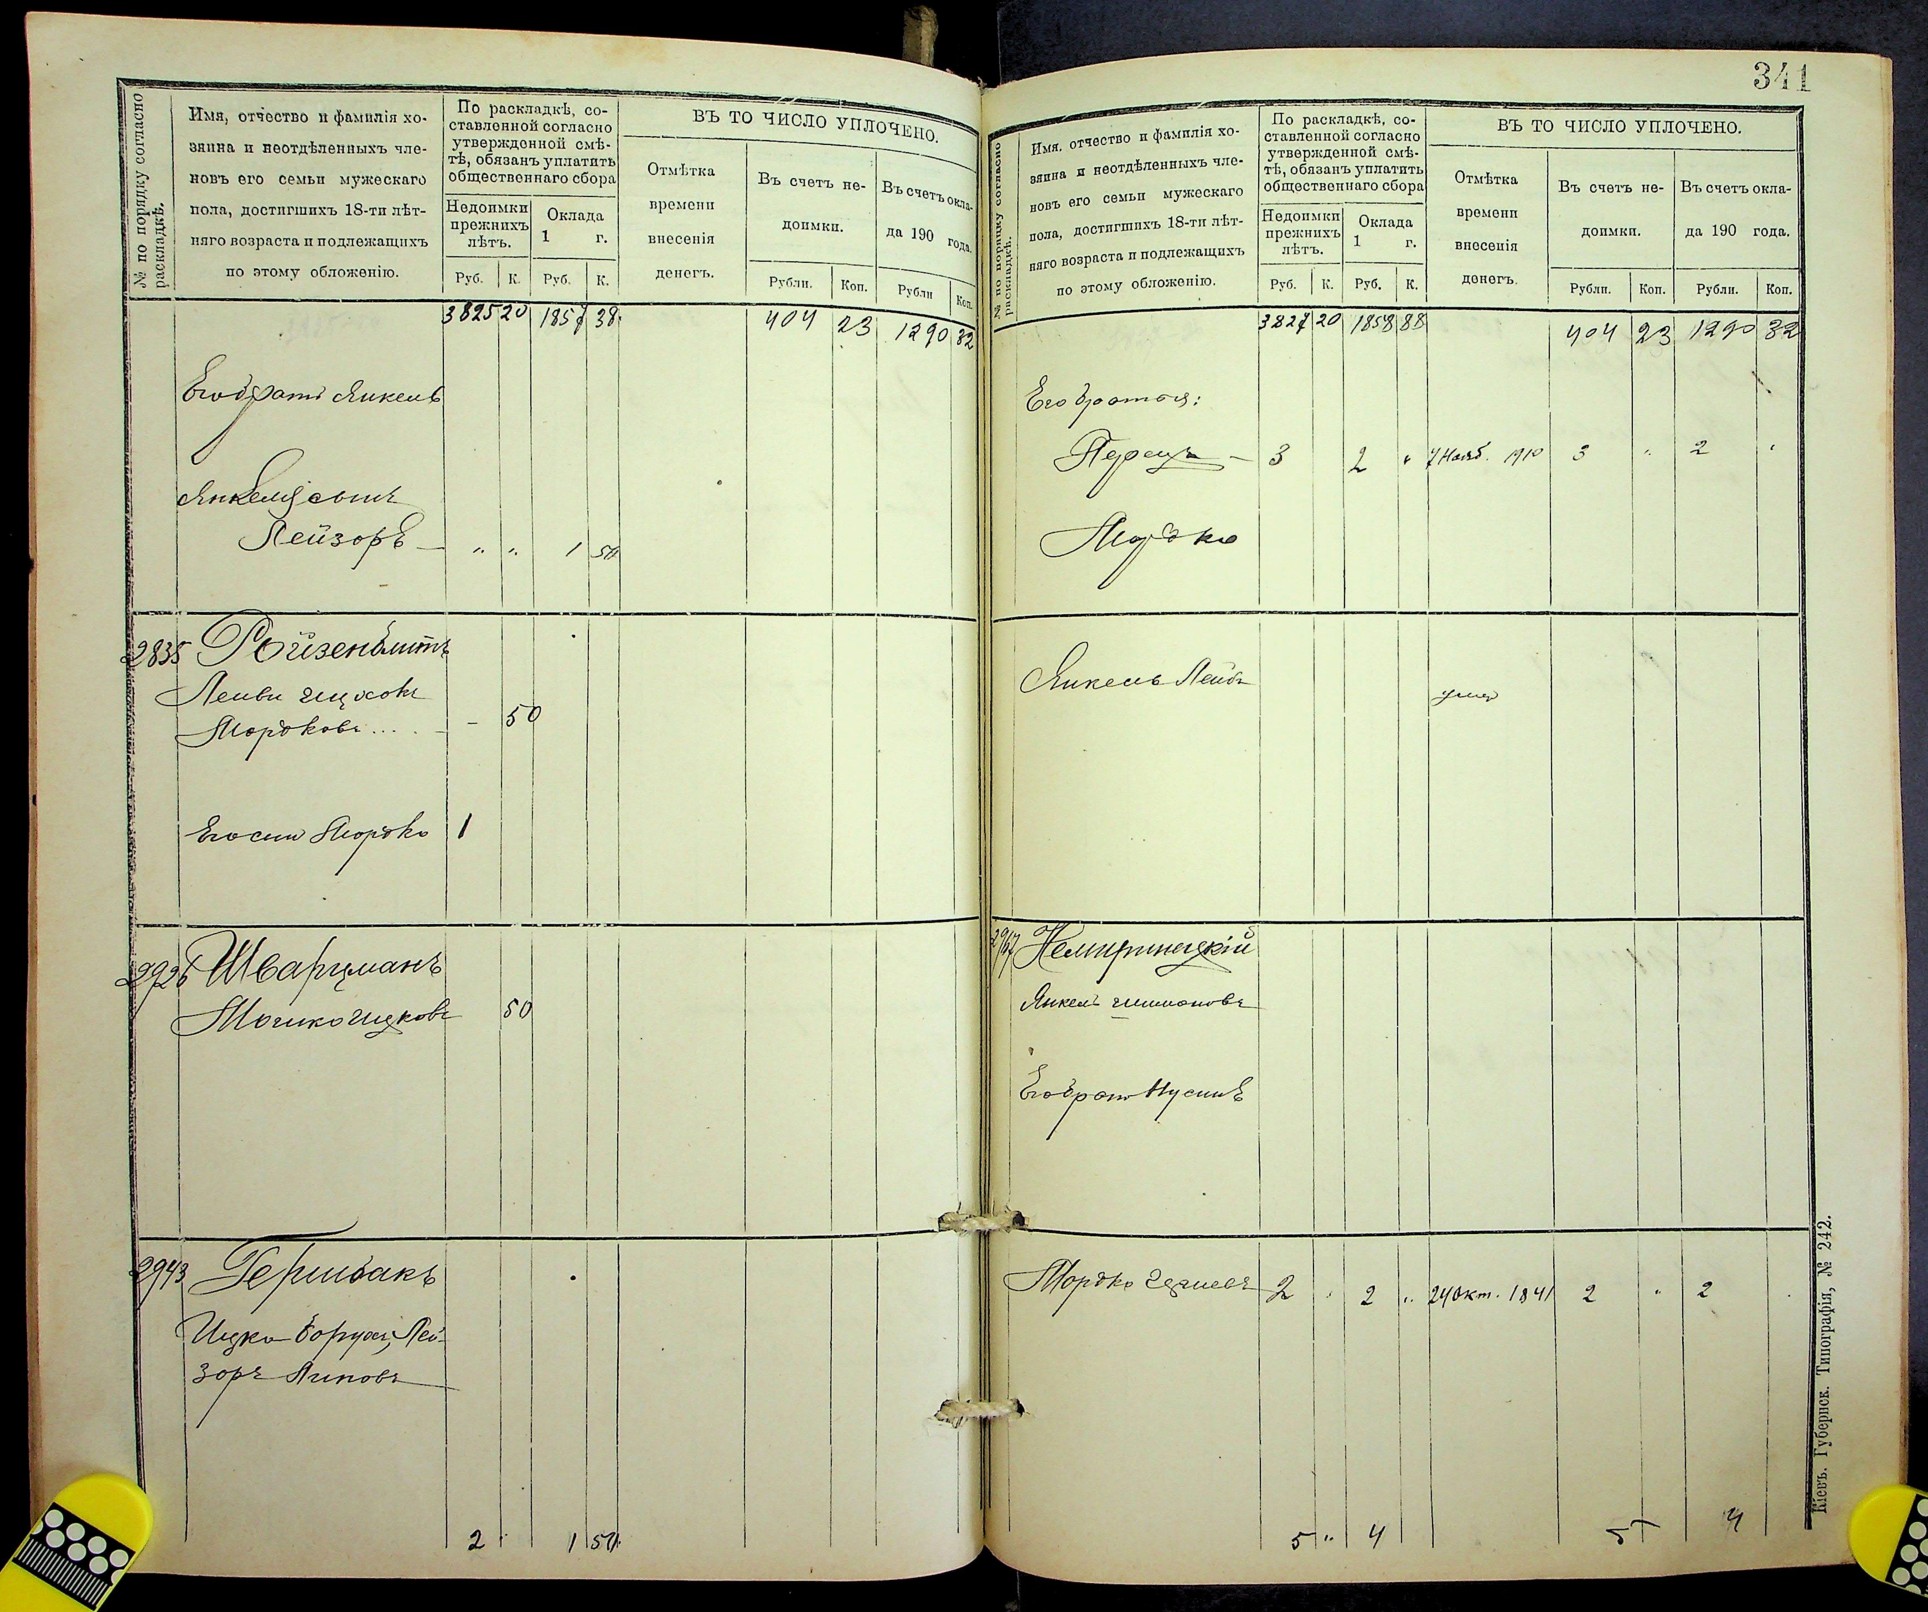 № по порядку согласно раскладкѣ.
Имя, отчество и фамилія хо-
зяина и неотдѣленныхъ чле-
новъ его семьи мужескаго
пола, достигшихъ 18-ти лѣт-
няго возраста и подлежащихъ
по этому обложенію.
По раскладкѣ, со-
ставленной согласно
утвержденной смѣ-
тѣ, обязанъ уплатить
общественнаго сбора
Недоимки
прежнихъ
лѣтъ.
Оклада
1 г.
Руб. К. Руб. К.
ВЪ ТО ЧИСЛО УПЛОЧЕНО.
Отмѣтка
времени
внесенія
денегъ.
Въ счетъ не-
доимки.
Въ счетъ окла-
да 190 года.
Рубли. Коп. Рубли Коп.
3825 20 1857 38 404 23 1290 32
Его братъ Янкель
Янкеля сынъ
Лейзоръ — " " 1 50
2835 Ройзенблитъ
Мордковъ.... - 50
Его сын Мордко 1
2926 Шварцманъ
Мошко Ицковъ 50
2943 Гершбакъ
Ицко Борухъ, Лей-
зоръ Липовъ
2 " 1 50
341
№ по порядку согласно раскладкѣ.
Имя, отчество и фамилія хо-
зяина и неотдѣленныхъ чле-
новъ его семьи мужескаго
пола, достигшихъ 18-ти лѣт-
няго возраста и подлежащихъ
по этому обложенію.
По раскладкѣ, со-
ставленной согласно
утвержденной смѣ-
тѣ, обязанъ уплатить
общественнаго сбора
Недоимки
прежнихъ
лѣтъ.
Оклада
1 г.
Руб. К. Руб. К.
ВЪ ТО ЧИСЛО УПЛОЧЕНО.
Отмѣтка
времени
внесенія
денегъ.
Въ счетъ не-
доимки.
Въ счетъ окла-
да 190 года.
Рубли. Коп. Рубли. Коп.
3827 20 1858 88 404 23 1290 32
Его братья:
Перецъ — 3 2 " 7 Нояб. 1910 3 " 2 "
Мордко
Янкель Лейбъ
Немиринецкій
Янкель Шимоновъ
Его братъ Нусинъ
Мордко 2 " 2 " 24 Окт. 2 " 2
5 " 4 5 4
Кіевъ. Губернск. Типографія, № 242.